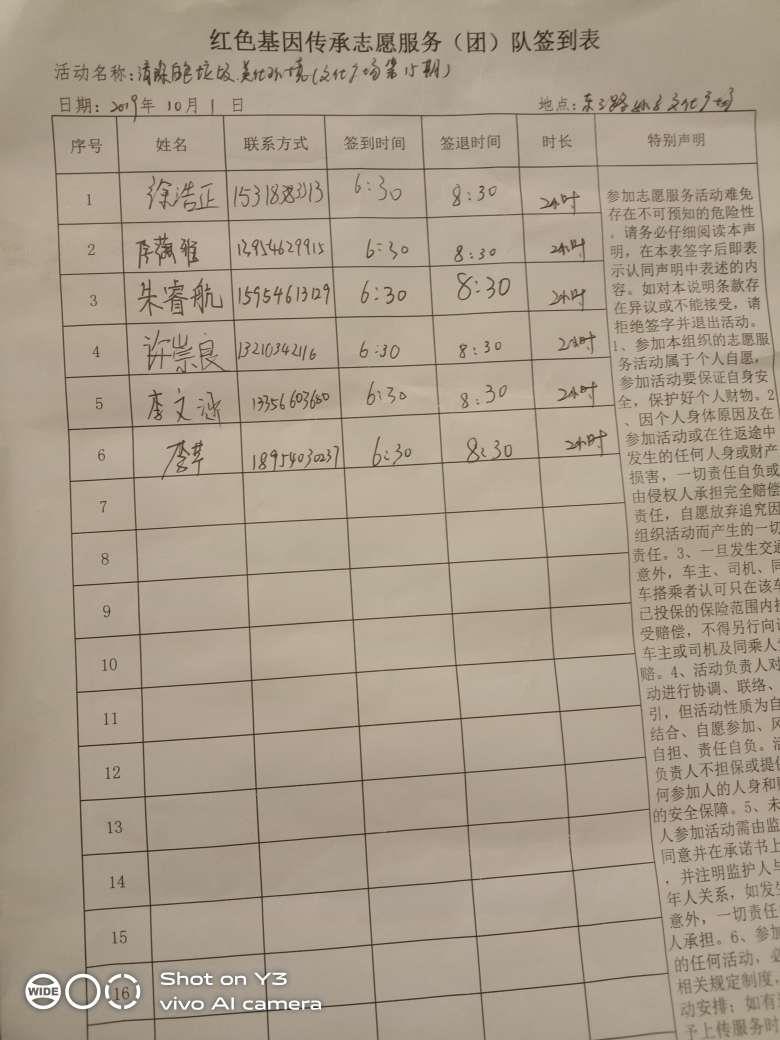 红色基因传承志愿服务（团）队签到表
活动名称：清除白色垃圾 美化环境（文化广场第15期）
日期：2019年 10月 1 日 地点：东三路 文化广场
序号 姓名 联系方式 签到时间 签退时间 时长 特别声明
1 徐浩正 6:30 8:30 2小时
2 13954629915 6:30 8:30 2小时
3 朱睿航 15954613129 6:30 8:30 2小时
4 许崇良 13210342116 6:30 8:30 2小时
5 李文涵 13356603680 6:30 8:30 2小时
6 18954030237 6:30 8:30 2小时
7
8
9
10
11
12
13
14
15
16
参加志愿服务活动难免
存在不可预知的危险性
。请务必仔细阅读本声
明，在本表签字后即表
示认同声明中表述的内
容。如对本说明条款存
在异议或不能接受，请
拒绝签字并退出活动。
1、参加本组织的志愿服
务活动属于个人自愿，
参加活动要保证自身安
全，保护好个人财物。2
、因个人身体原因及在
参加活动或在往返途中
发生的任何人身或财产
损害，一切责任自负或
由侵权人承担完全赔偿
责任，自愿放弃追究因
组织活动而产生的一切
责任。3、一旦发生交通
意外，车主、司机、同
车搭乘者认可只在该车
已投保的保险范围内
受赔偿，不得另行向
车主或司机及同乘人
赔。4、活动负责人对
动进行协调、联络、
引，但活动性质为自
结合、自愿参加、风
自担、责任自负。活
负责人不担保或提供
何参加人的人身和
的安全保障。5、未
人参加活动需由监
同意并在承诺书上
，并注明监护人与
年人关系，如发生
意外，一切责任
人承担。6、参加
的任何活动，必
相关规定制度，
动安排；如有
予上传服务时
WIDE
Shot on Y3
vivo AI camera